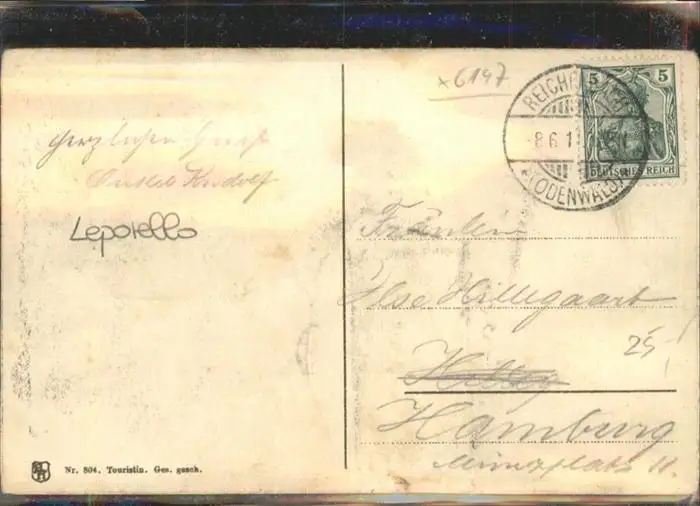 x 6147
REICH
8.6.1
(ODENWALD)
5 5
DEUTSCHES REICH
Herzlichen Gruß
Onkel Rudolf
Leporello
Fräulein
Ilse Hillegaart
25
Hamburg
Münzplatz 11.
Nr. 804. Touristin. Ges. gesch.